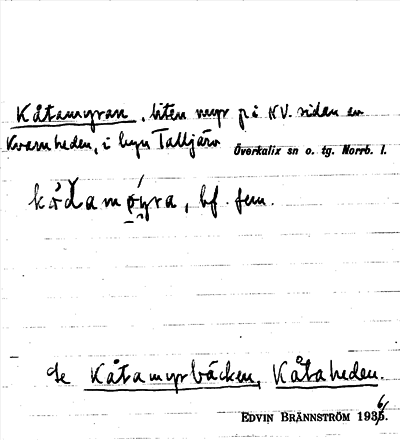 Kåtamyran, liten myr på NV. sidan av
Kvarnheden, i byn Talljärv Överkalix sn o. tg. Norrb. l.
bf. fem.
Se Kåtamyrbäcken, Kåtaheden.
EDVIN BRÄNNSTRÖM 1936.